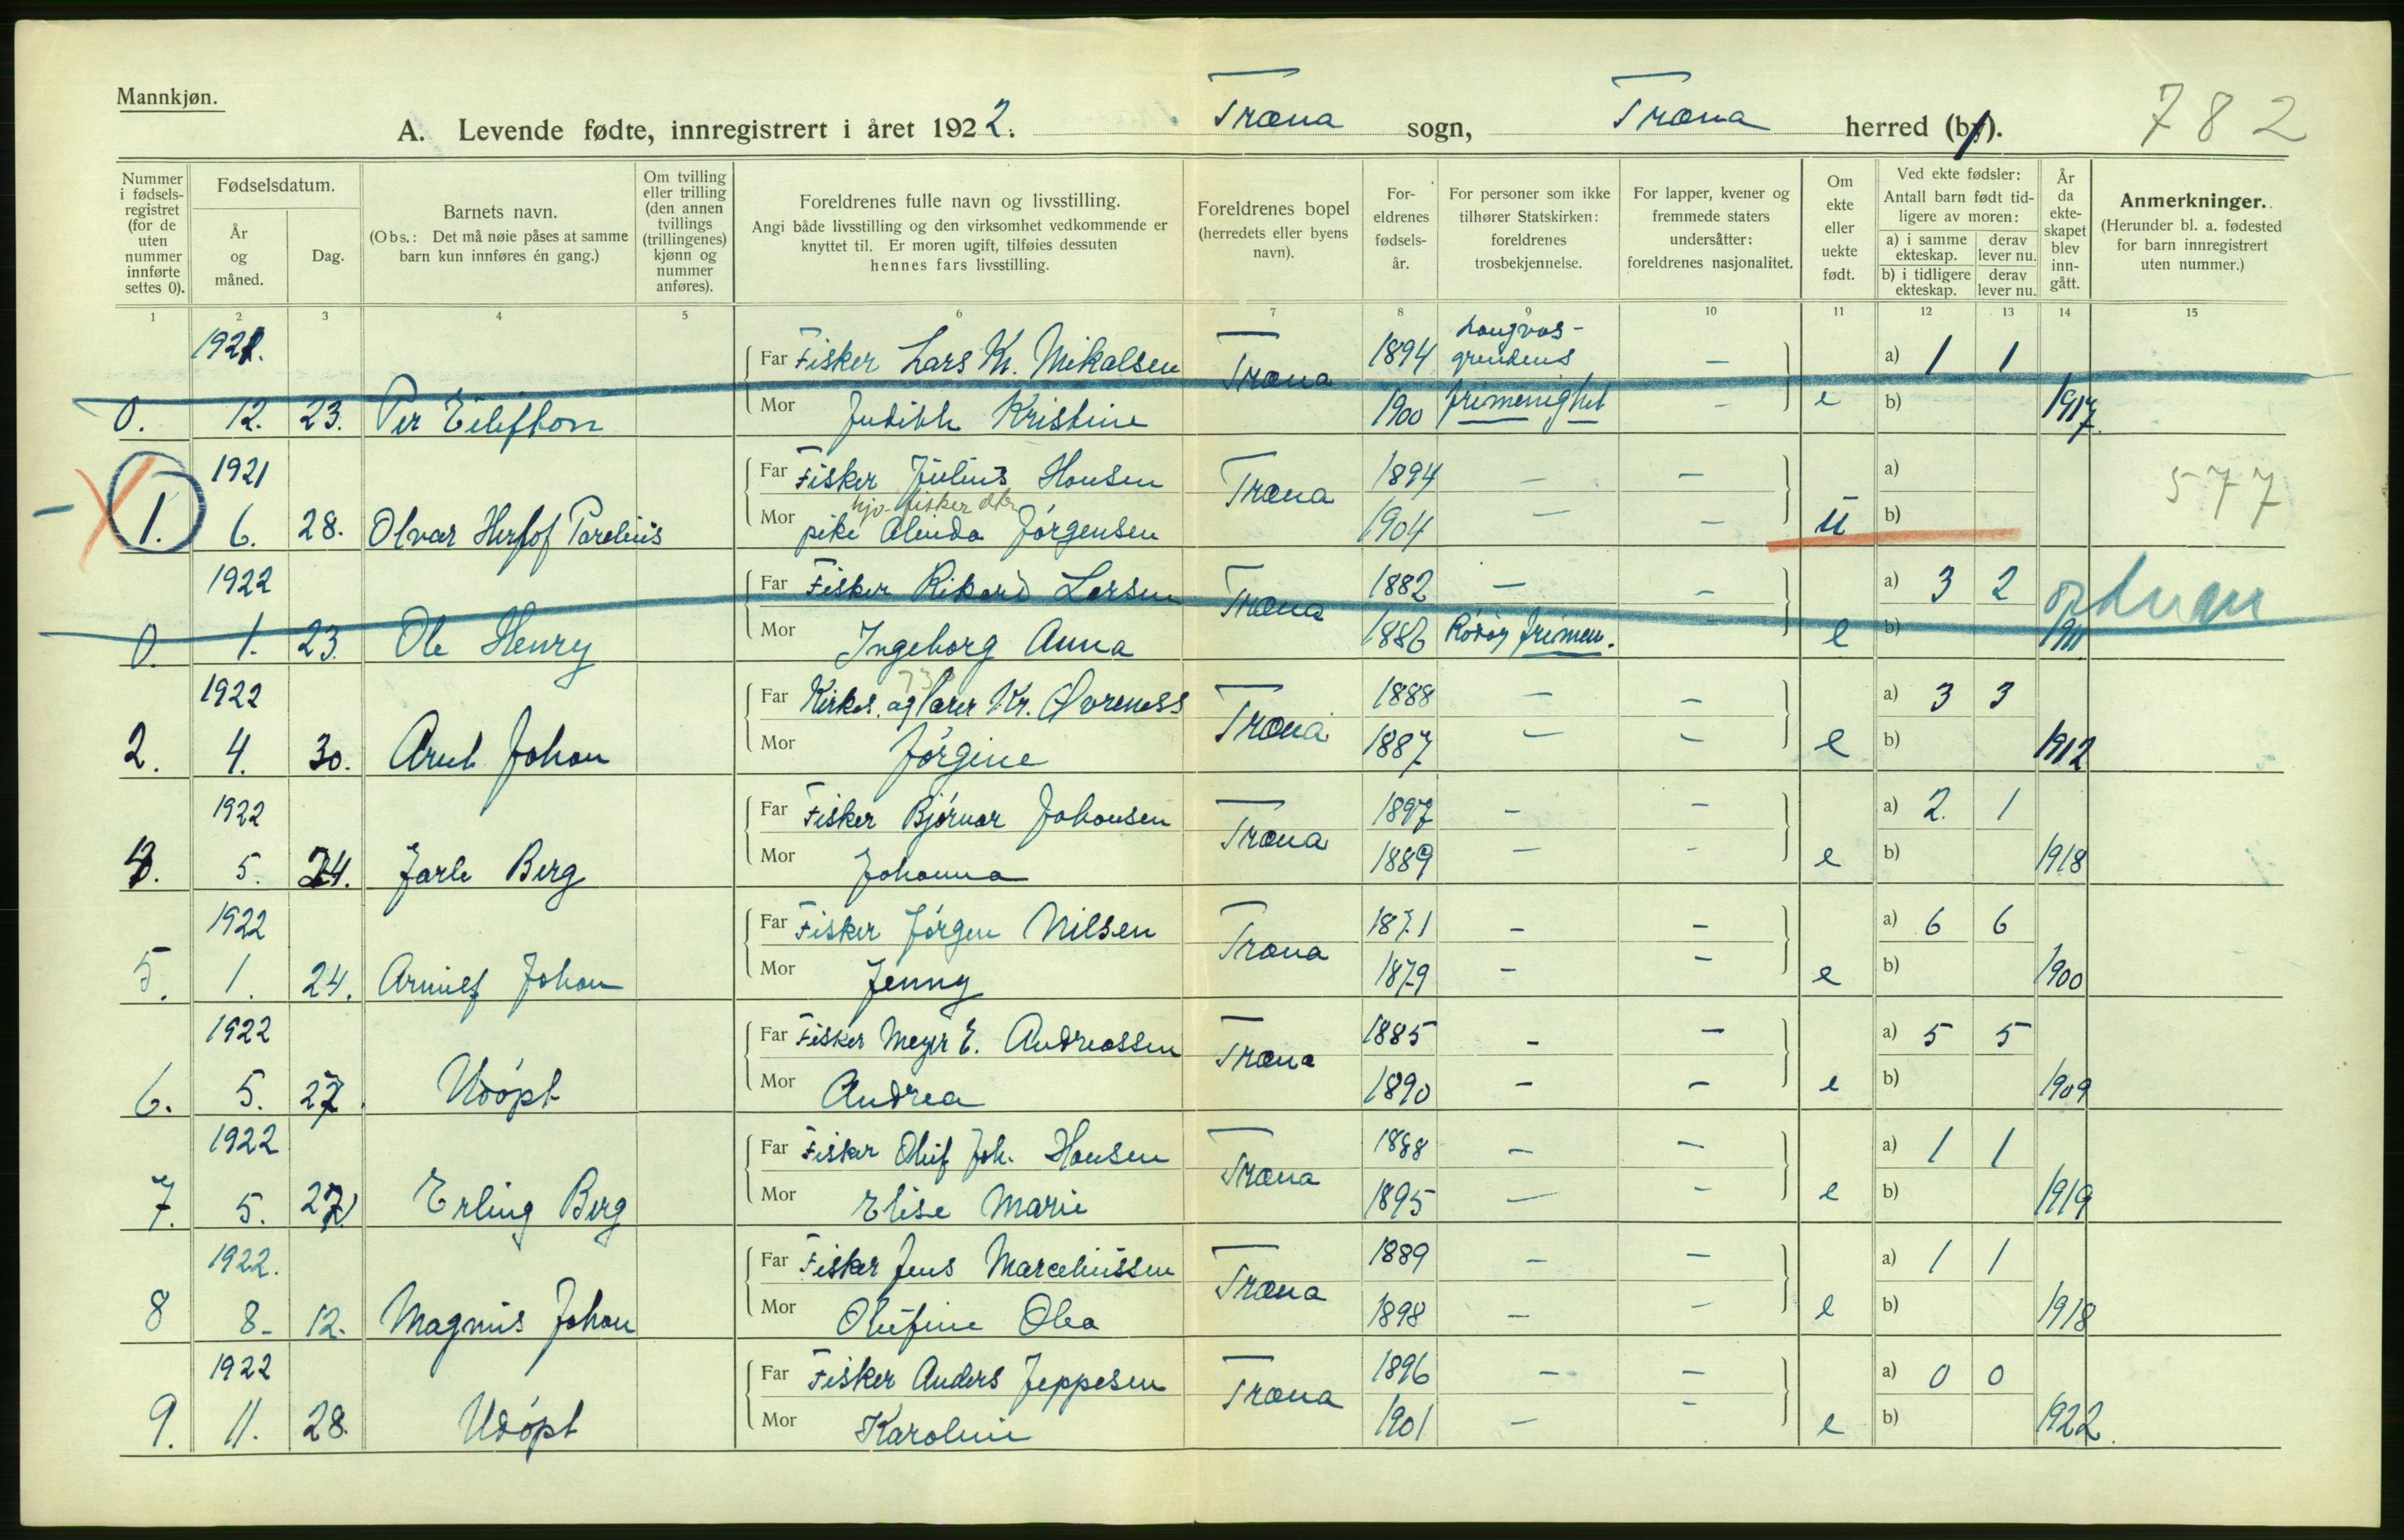 Mannkjøn.
A. Levende fødte, innregistrert i året 1922. Træna sogn, Træna herred (by). 782
Nummer i fødselsregistret (for de uten nummer innførte settes 0).
Fødselsdatum.
År og måned.
Dag.
Barnets navn.
(Obs.: Det må nøie påses at samme barn kun innføres én gang.)
Om tvilling eller trilling (den annen tvillings (trillingenes) kjønn og nummer anføres).
Foreldrenes fulle navn og livsstilling.
Angi både livsstilling og den virksomhet vedkommende er knyttet til. Er moren ugift, tilføies dessuten hennes fars livsstilling.
Foreldrenes bopel (herredets eller byens navn).
Foreldrenes fødselsår.
For personer som ikke tilhører Statskirken: foreldrenes trosbekjennelse.
For lapper, kvener og fremmede staters undersåtter: foreldrenes nasjonalitet.
Om ekte eller uekte født.
Ved ekte fødsler:
Antall barn født tidligere av moren:
a) i samme ekteskap. derav lever nu.
b) i tidligere ekteskap. derav lever nu.
År da ekteskapet blev inngått.
Anmerkninger.
(Herunder bl. a. fødested for barn innregistrert uten nummer.)
1 2 3 4 5 6 7 8 9 10 11 12 13 14 15
1921. Far Fisker Lars Kr. Mikalsen Træna 1894 — a) 1 1
0. 12. 23. Per Mor Judith Kristine 1900 frimenighet - e b) 1917.
1921 Far Fisker Julius Hansen Træna 1894 — — a) 577
hjv. fisker dtr
1. 6. 28. Olvar Herlof Parelius Mor pike Alinda Jørgensen 1904 — — u b)
1922 Far Fisker Rikard Larsen Træna 1882 — — a) 3 2
0. 1. 23. Ole Henry Mor Ingeborg Anna 1886 Rödöy frimen. — e b) 1911
1922 Far Kirkes. og lærer Kr. Øvreness Træna 1888 — — a) 3 3
2. 4. 30. Arnt Johan Mor Jørgine 1887 — — e b) 1912
1922 Far Fisker Bjørnar Johansen Træna 1897 — — a) 2. 1
4. 5. 24. Jarle Berg Mor Johanna 1889 — - e b) 1918
1922 Far Fisker Jørgen Nilsen Træna 1871 - — a) 6 6
5. 1. 24. Arnulf Johan Mor Jenny 1879 - - e b) 1900
1922 Far Fisker Meyer E. Andreassen Træna 1885 - — a) 5 5
6. 5. 27. Udöpt Mor Andrea 1890 - - e b) 1909
1922 Far Fisker Oluf Joh. Hansen Træna 1888 — — a) 1 1
7. 5. 27. Erling Berg Mor Elise Marie 1895 — - e b) 1919
1922. Far Fisker Jens Marceliussen Træna 1889 — — a) 1 1
8 8- 12. Magnus Johan Mor Olufine Olea 1898 — - e b) 1918
1922 Far Fisker Anders Jeppesen Træna 1896 — — a) 0 0
9. 11. 28. Udöpt Mor Karoline 1901 — - e b) 1922.